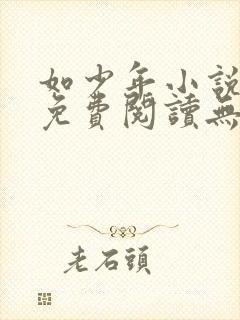 如少年小說
免費閱讀無
老石頭